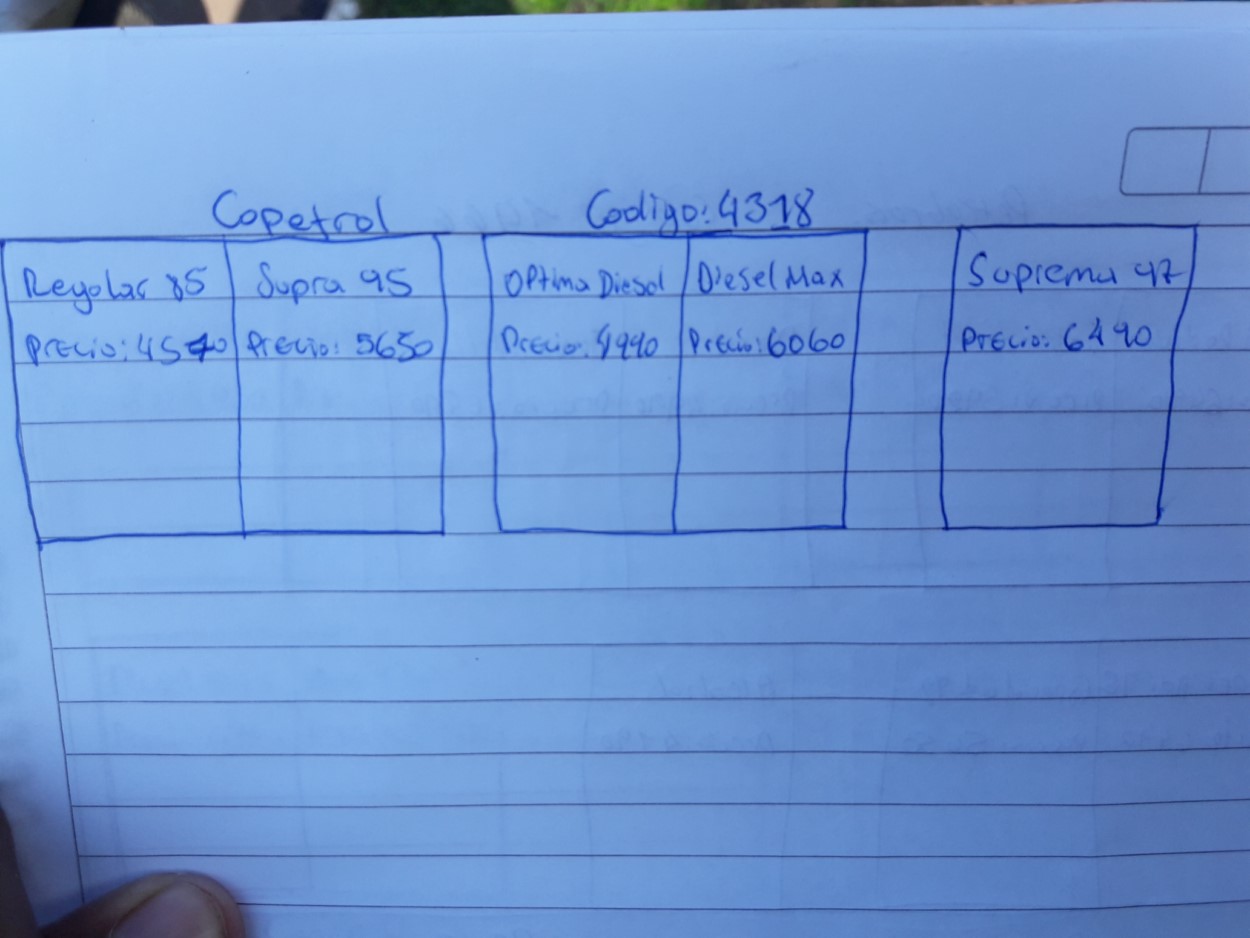 Copetrol Codigo: 4318
Regular 85 Supra 95 OPtima Diesel Diesel Max Suprema 97
Precio: 4570 Precio: 5650 Precio: 4990 Precio: 6060 Precio: 6490